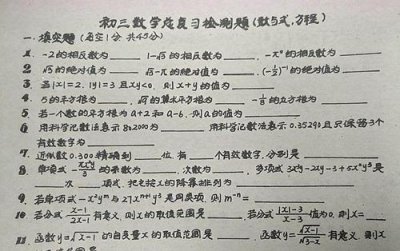 初三数学总复习检测题(数与式,方程)
一.填空题(每空1分 共45分)
1. -2的相反数为____ 1-√5的相反数为____, -π°的相反数为____
2. √5的绝对值为____ √5-π的绝对值为____ (-½)⁻²的绝对值为____
3. 若|x|=2, |y|=3且xy<0, 则x+y的值为____
4. 5的平方根为____, 的算术平方根为____ -1/8的立方根为____
5. 若一个数的平方根为a+2和a-6, 则a的值为____
6. 用科学记数法表示802000为____, 用科学记数法表示0.35290且只保留3个
有效数字为____
7. 近似数0.300精确到____位 有____个有效数字, 分别是____
8. 单项式 的系数为____ 次数为____, 多项式3x²y-2xy-3+5x²y³是
____次____项式, 把它按x的降幂排列为____
9. 若单项式-x²yᵐ与27xⁿ⁺¹y³是同类项, 则m⁻ⁿ=____
10. 若分式 (x-1)/(2x-1) 有意义, 则x的取值范围是____ 若分式 (|x|-3)/(x-3) 值为0, 则x=____
11. 函数y=√(x-1)的自变量x的取值范围是____ 函数y=√(x-1)/√(3-x) 有意义, 则x____